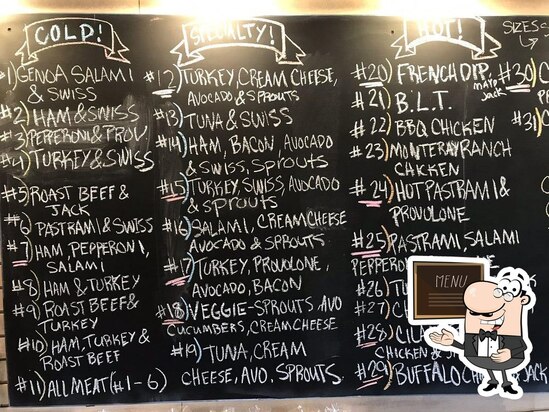 COLD!
#1) GENOA SALAMI
& SWISS
#2) HAM & SWISS
#3) PEPPERONI & PROV.
#4) TURKEY & SWISS
#5) ROAST BEEF &
JACK
#6) PASTRAMI & SWISS
#7) HAM, PEPPERONI,
SALAMI
#8) HAM & TURKEY
#9) ROAST BEEF &
TURKEY
#10) HAM, TURKEY &
ROAST BEEF
#11) ALL MEAT (#1-6)
SPECIALTY!
#12) TURKEY, CREAM CHEESE,
AVOCADO & SPROUTS
#13) TUNA & SWISS
#14) HAM, BACON, AVOCADO
& SWISS, SPROUTS
#15) TURKEY, SWISS, AVOCADO
& sprouts
#16) SALAMI, CREAM CHEESE
AVOCADO & SPROUTS
#17) TURKEY, PROVOLONE,
AVOCADO, BACON
#18) VEGGIE-SPROUTS, AVO
CUCUMBERS, CREAM CHEESE
#19) TUNA, CREAM
CHEESE, AVO, SPROUTS.
HOT!
#20) FRENCH DIP,
Jack
#21) B.L.T.
#22) BBQ CHICKEN
#23) MONTERAY RANCH
CHICKEN
#24) HOT PASTRAMI &
PROVOLONE
#25) PASTRAMI, SALAMI
#26)
#27)
#28)
CHICKEN &
#29) BUFFALO JACK
SIZES
#30)
#31)
MENU